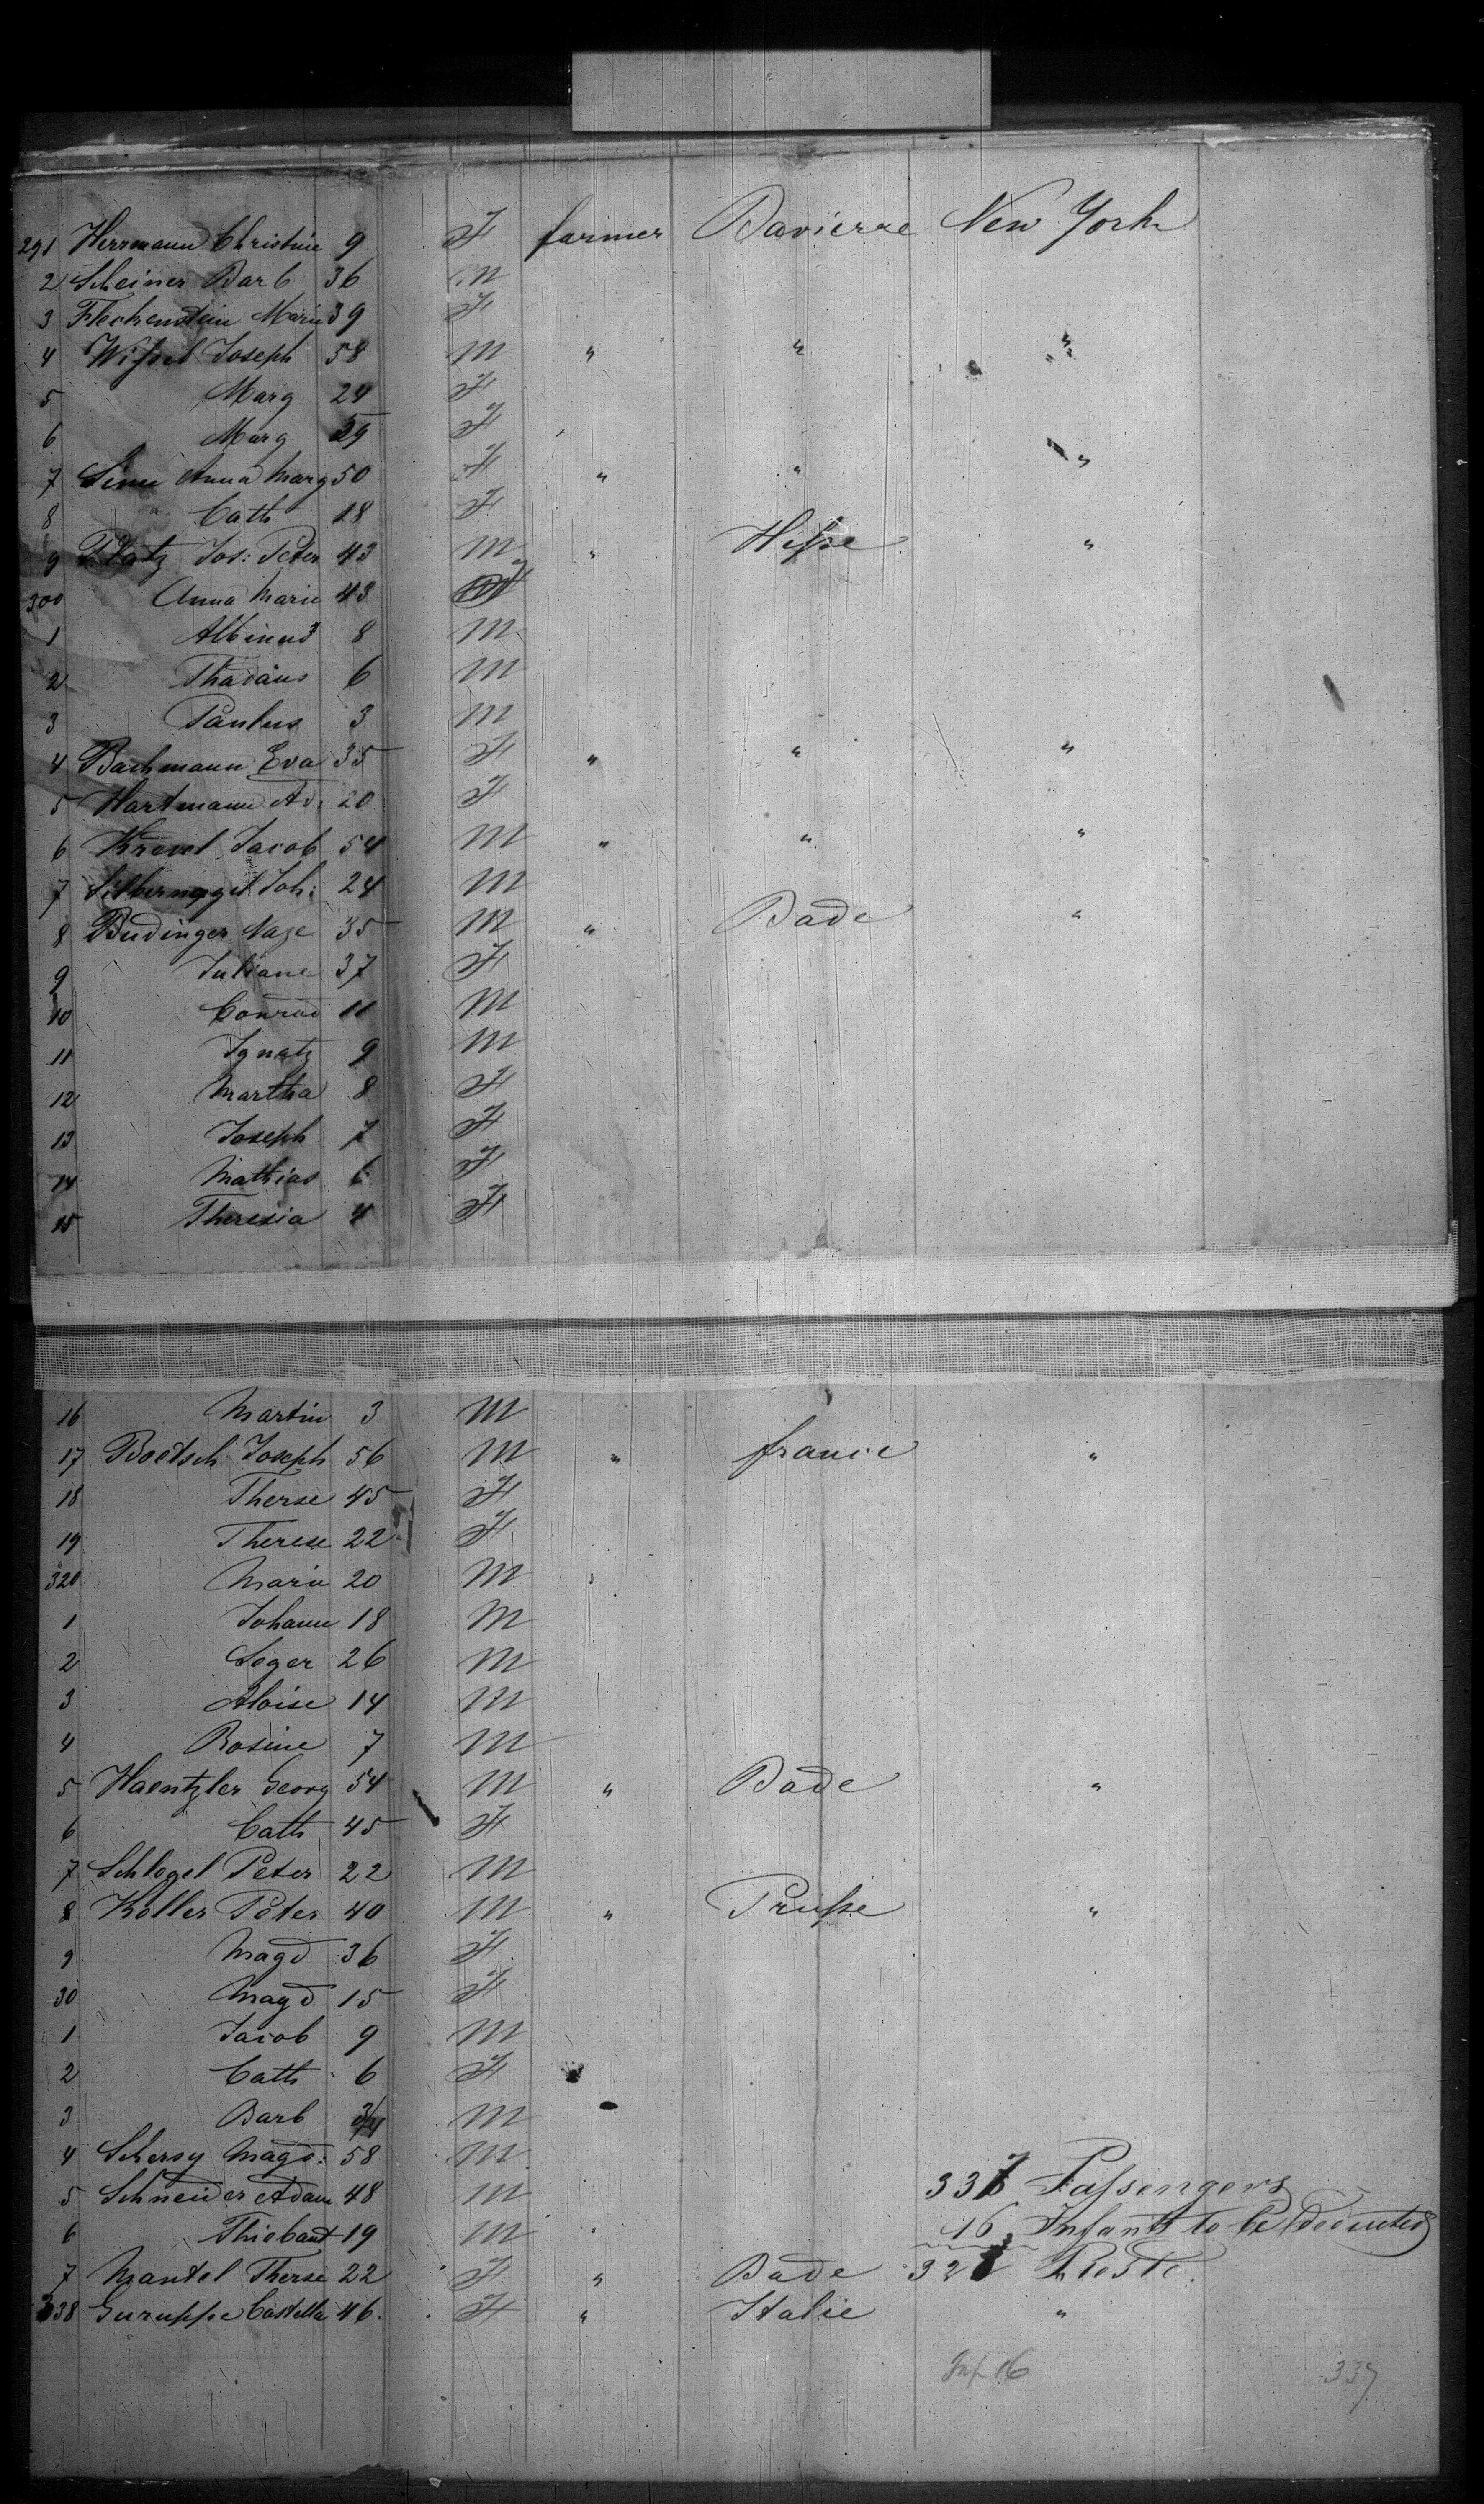 291 Herrmann Christine 9 F farmer Bavierre New York
2 Scheiner Barb 36 M
3 Flechenstein Marie 39 F
4 Wißel Joseph 58 M " " "
5 Marg 24 F
6 Marg F
7 Anna Marg 50 F " " "
8 " Cath 18 F
9 Platz Jos: Peter 43 M " Heße "
300 Anna Marie 43 F
1 Albinus 8 M
2 Thadäus 6 M
3 Paulus 3 M
4 Bachmann Eva 35 F " " "
5 Hartmann Ad. 20 F
6 Jacob 54 M " " "
7 Silbernagel Joh: 24 M
8 Budinger Naze 35 M " Bade "
9 Juliane 37 F
10 Conrad 11 M
11 Ignatz 9 M
12 Martha 8 F
13 Joseph 7 F
14 Mathias 6 F
15 Theresia 4 F
16 Martin 3 M
17 Boetsch Joseph 56 M " france "
18 Therse 45 F
19 Therese 22 F
320 Marie 20 M
1 Johann 18 M
2 Leger 26 M
3 Aloise 14 M
4 Rosine 7 M
5 Haentzler Georg 54 M " Bade "
6 Cath 45 F
7 Schlogel Peter 22 M
8 Koller Peter 40 M " Pruße "
9 Magd 36 F
30 Magd 15 F
1 Jacob 9 M
2 Cath 6 F
3 Barb M
4 Schersy Magd: 58 M
5 Schneider Adam 48 M 337 Paßengers
6 Thiebaut 19 M 16 Infants to be deducted
7 Mantel Therse 22 F " Bade 321 Reste.
338 Guruppe Castella 46. F " Italie "
Inf 16 337